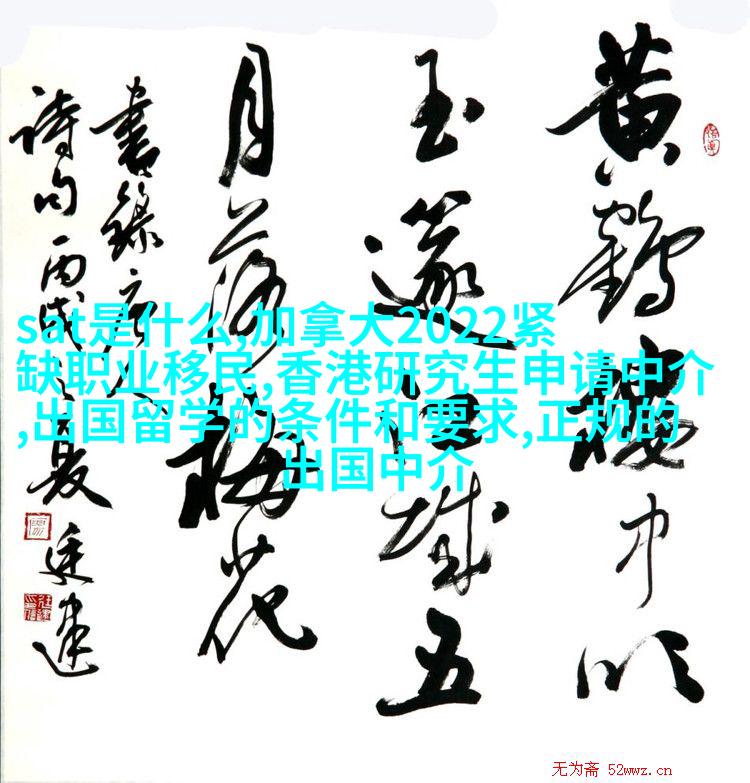 黄鶴樓中吹
玉篴江城五
月落梅花
書錄唐人
詩句丙戌之夏廷建
sat是什么,加拿大2022紧
缺职业移民,香港研究生申请中介
,出国留学的条件和要求,正规的
出国中介
无为斋 52wwz.cn